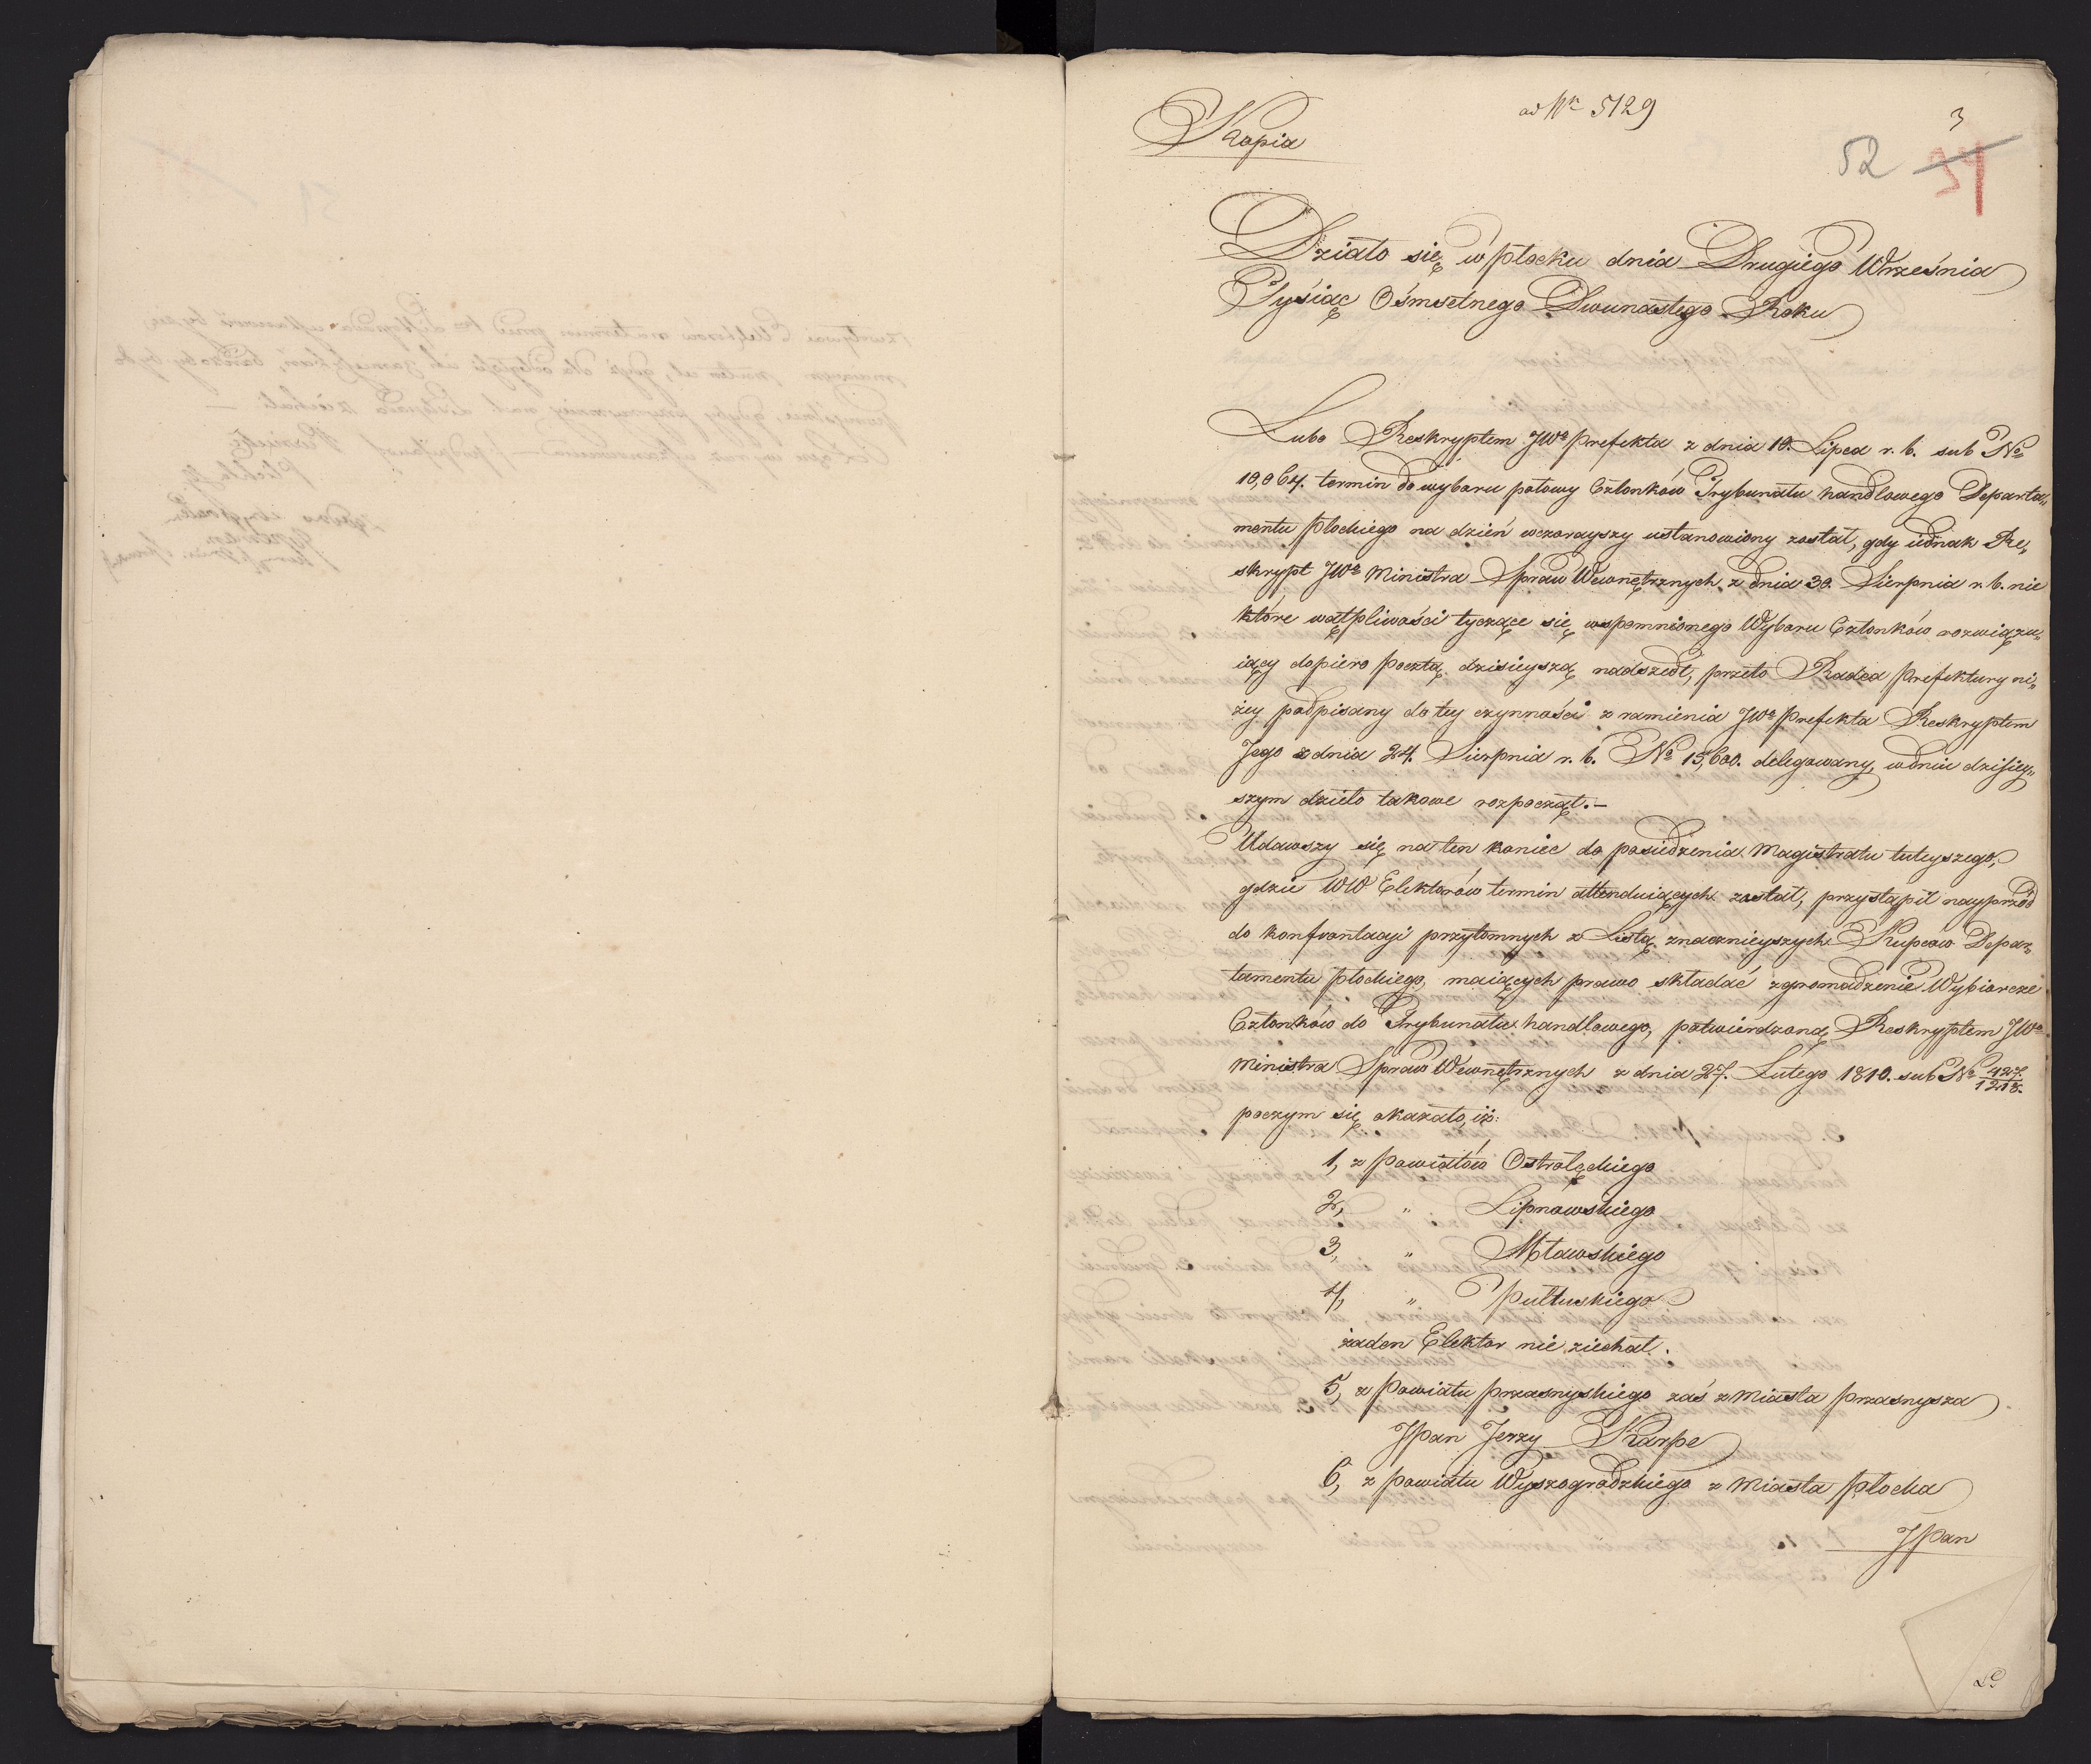 ad Nr 5129
Kopia
3
52 34
Działo się w Płocku dnia Drugiego Września
Tysiąc Ośmsetnego Dwunastego Roku
Lubo Reskryptem JWo Prefekta z dnia 10. Lipca r. b. sub No
10,064. termin do wyboru połowy Członków Trybunału handlowego Departa„
mentu Płockiego na dzień wczorayszy ustanowiony został, gdy iednak Re„
skrypt JWo Ministra Spraw Wewnętrznych z dnia 30. Sierpnia r. b. nie
które wątpliwości tyczące się wspomnionego Wyboru Członków rozwiązu„
iący dopiero pocztą dzisieyszą nadszedł, przeto Radca Prefektury ni„
żey podpisany do tey czynności z ramienia JWo Prefekta Reskryptem
Jego z dnia 24. Sierpnia r. b. No 15,600. delegowany, w dniu dzisiey„
szym dzieło takowe rozpoczął.—
Udawszy się na ten koniec do posiedzenia Magistratu tuteyszego,
gdzie WW Elektorów termin attenduiących zastał, przystąpił nayprzód
do konfrontacyi przytomnych z Listą znacznieyszych Kupców Depar„
tamentu Płockiego, maiących prawo składać zgromadzenie Wybiorcze
Członków do Trybunału handlowego, potwierdzoną Reskryptem JWo
Ministra Spraw Wewnętrznych z dnia 27. Lutego 1810. sub No 427./1218.
poczym się okazało, iż:
1, z Powiatów Ostrołęckiego
2, „ Lipnowskiego
3, „ Mławskiego
4, „ Pułtuskiego
żaden Elektor nie ziechał.
5, z Powiatu Przasnyskiego zaś z Miasta Przasnysza
JPan Jerzy Karpe
6, z Powiatu Wyszogrodzkiego z Miasta Płocka
JPan